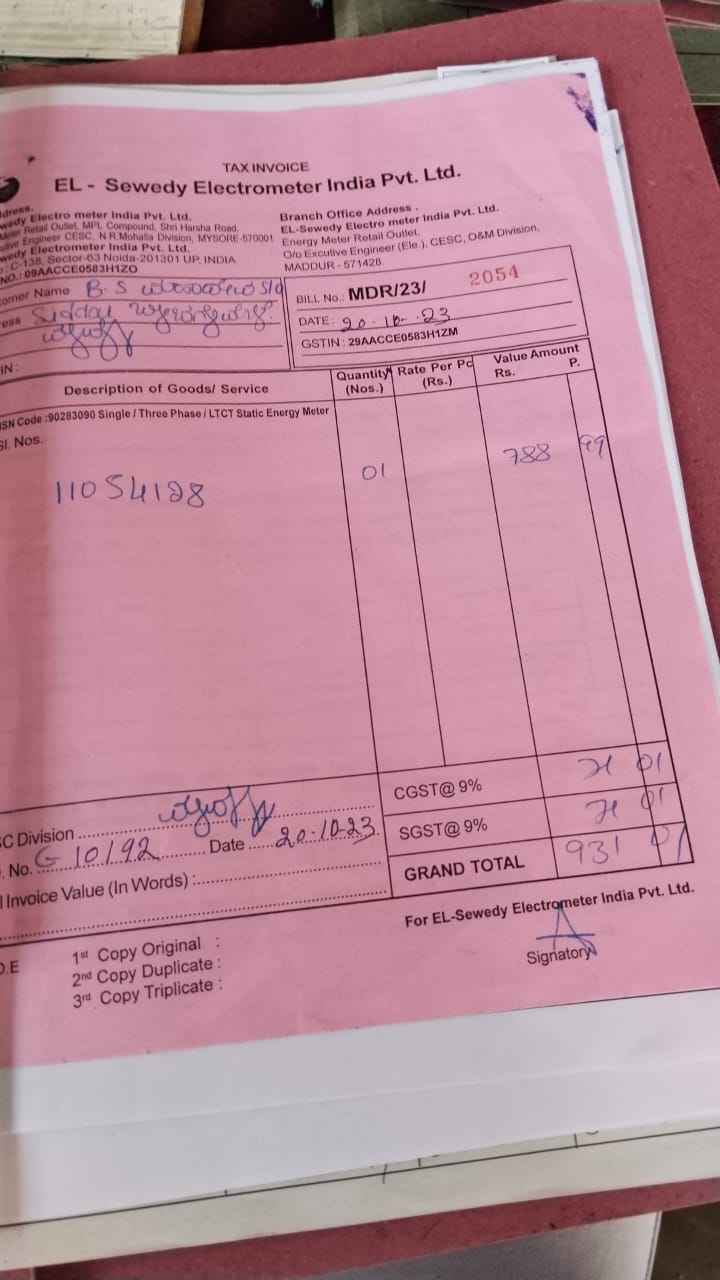 TAX INVOICE
EL - Sewedy Electrometer India Pvt. Ltd.
dress.
wedy Electro meter India Pvt. Ltd.
Meter Retail Outlet, MPL Compound, Shri Harsha Road,
utive Engineer CESC, N.R.Mohalla Division, MYSORE-570001
wedy Electrometer India Pvt. Ltd.
: C-138, Sector-63 Noida-201301 UP, INDIA
NO.: 09AACCE0583H1ZO
Branch Office Address .
EL-Sewedy Electro meter India Pvt. Ltd.
Energy Meter Retail Outlet,
O/o Excutive Engineer (Ele.), CESC, O&M Division,
MADDUR - 571428.
omer Name B.S S/o
ess
IN :
BILL No.: MDR/23/ 2054
DATE : 20-10-23
GSTIN : 29AACCE0583H1ZM
Description of Goods/ Service
Quantity (Nos.)
Rate Per Pc (Rs.)
Value Amount
Rs. P.
SN Code :90283090 Single / Three Phase / LTCT Static Energy Meter
Sl. Nos.
11054128 01 788 99
CGST@ 9% 71 01
SGST@ 9% 71 01
GRAND TOTAL 931 01
C Division
. No. G 10192 Date 20-10-23
l Invoice Value (In Words) :
For EL-Sewedy Electrometer India Pvt. Ltd.
Signatory
O.E
1st Copy Original :
2nd Copy Duplicate :
3rd Copy Triplicate :